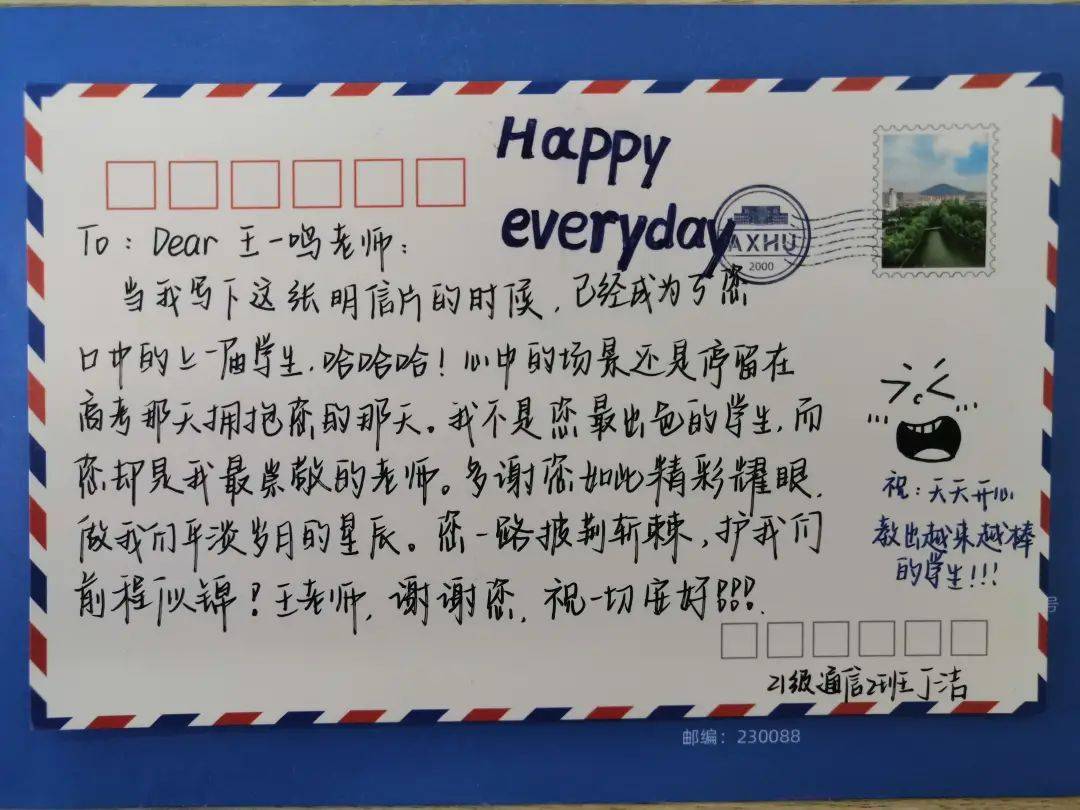 Happy
everyday
AXHU
2000
To：Dear 王一鸣老师：
当我写下这张明信片的时候，已经成为了您
口中的上一届学生，哈哈哈！心中的场景还是停留在
高考那天拥抱您的那天。我不是您最出色的学生，而
您却是我最崇敬的老师。多谢您如此精彩耀眼，
做我们平淡岁月的星辰。您一路披荆斩棘，护我们
前程似锦！王老师，谢谢您，祝一切安好!!!.
祝：天天开心
教出越来越棒
的学生!!!
号
21级通信2班丁洁
邮编：230088